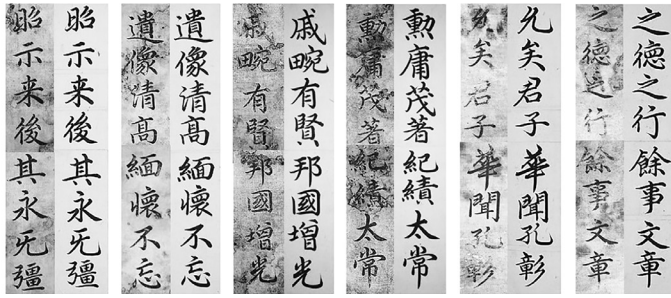 之德之行餘事文章
之德之行餘事文章
允矣君子華聞孔彰
允矣君子華聞孔彰
勲庸茂著紀績太常
勲庸茂著紀績太常
戚畹有賢邦國增光
戚畹有賢邦國增光
遺像清髙緬懷不忘
遺像清髙緬懷不忘
昭示来後其永无疆
昭示来後其永无疆